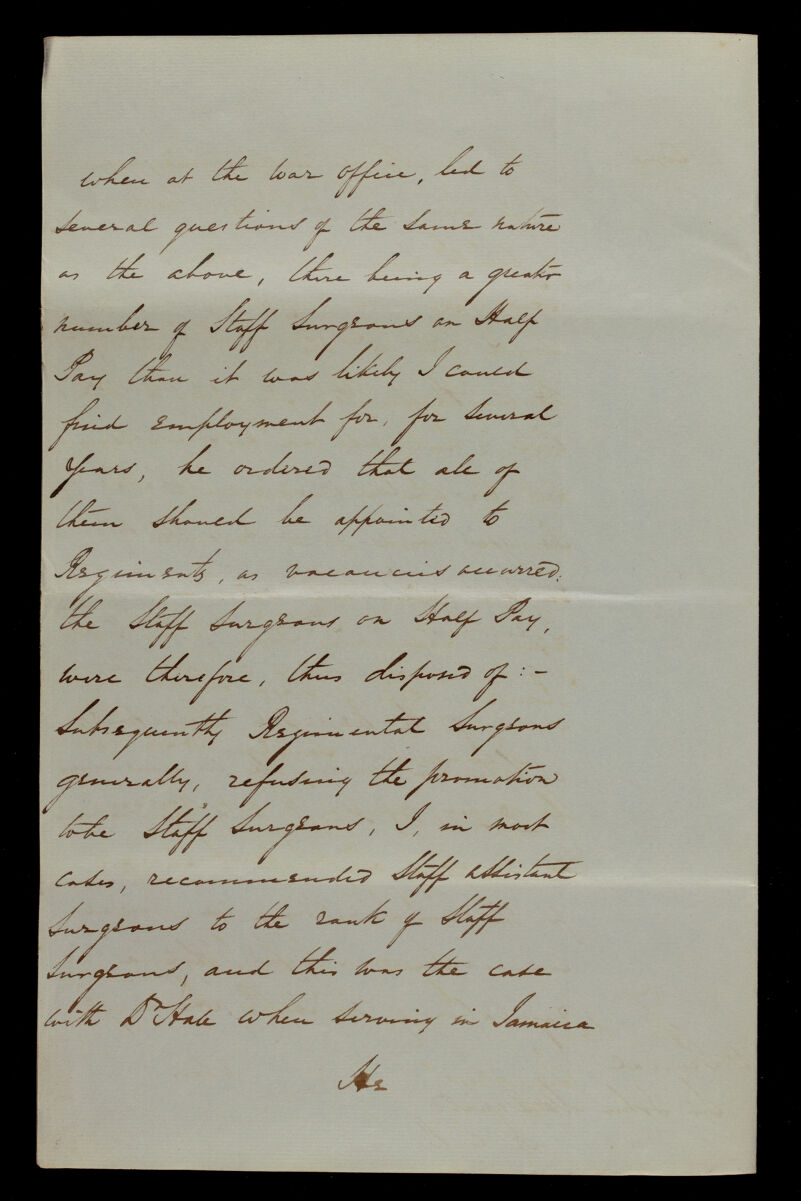 when at the War Office, led to
several questions of the same nature
as the above, there being a greater
number of Staff Surgeons on Half
Pay than it was likely I could
find employment for, for several
Years, he ordered that all of
them should be appointed to
Regiments, as vacancies occurred;
the Staff Surgeons on Half Pay,
were therefore, thus disposed of:-
Subsequently Regimental Surgeons
generally, refusing the promotion
to be Staff Surgeons, I, in most
cases, recommended Staff Assistant
Surgeons to the rank of Staff
Surgeons, and this was the case
with Dr Hall when serving in Jamaica
He